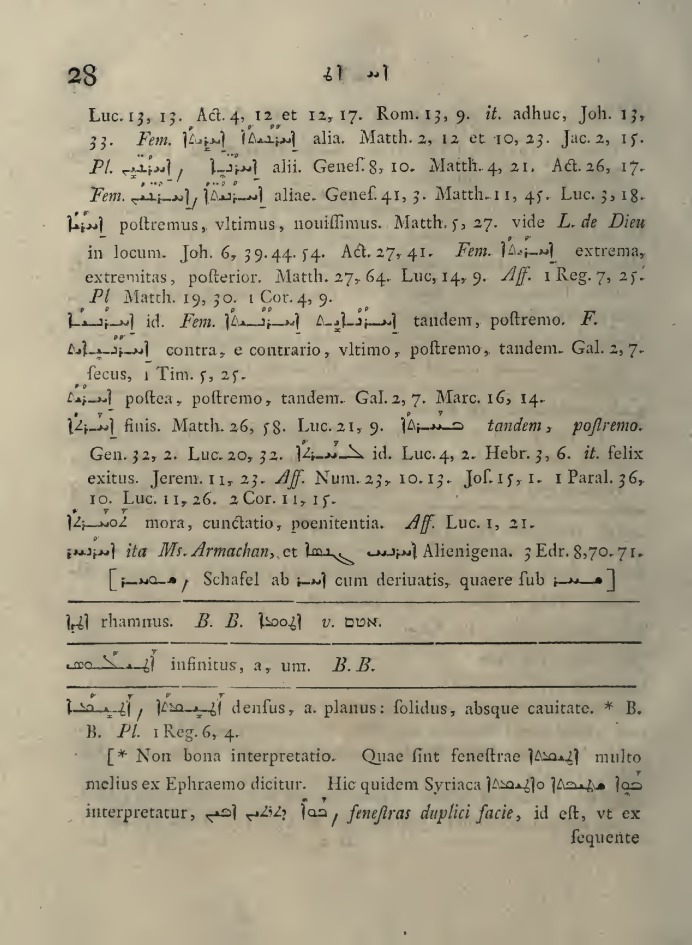 28 ܐܚ ܐܛ
Luc. 13, 13. Act. 4, 12 et 12, 17. Rom. 13, 9. it. adhuc, Joh. 13,
33. Fem. alia. Matth. 2, 12 et 10, 23. Jac. 2, 15.
Pl. alii. Geneſ. 8, 10. Matth. 4, 21. Act. 26, 17.
Fem. aliae. Geneſ. 41, 3. Matth. 11, 45. Luc. 3, 18.
ܐܚܪܝܐ poſtremus, vltimus, nouiſſimus. Matth. 5, 27. vide L. de Dieu
in locum. Joh. 6, 39. 44. 54. Act. 27, 41. Fem. extrema,
extremitas, poſterior. Matth. 27, 64. Luc, 14, 9. Aff. 1 Reg. 7, 25.
Pl Matth. 19, 30. 1 Cor. 4, 9.
id. Fem. tandem, poſtremo. F.
contra, e contrario, vltimo, poſtremo, tandem. Gal. 2, 7.
ſecus, 1 Tim. 5, 25.
poſtea, poſtremo, tandem. Gal. 2, 7. Marc. 16, 14.
ܐܚܪܬܐ finis. Matth. 26, 58. Luc. 21, 9. ܒܚܪܬܐ tandem, poſtremo.
Gen. 32, 2. Luc. 20, 32. ܠܚܪܬܐ id. Luc. 4, 2. Hebr. 3, 6. it. felix
exitus. Jerem. 11, 23. Aff. Num. 23, 10. 13. Joſ. 15, 1. 1 Paral. 36,
10. Luc. 11, 26. 2 Cor. 11, 15.
ܬܘܚܪܬܐ mora, cunctatio, poenitentia. Aff. Luc. 1, 21.
ita Ms. Armachan, et Alienigena. 3 Edr. 8, 70. 71.
[ܫܘܚܪ, Schafel ab ܐܚܪ cum deriuatis, quaere ſub ܫܚܪ]
ܐܛܕܐ rhamnus. B. B. v. אטם.
infinitus, a, um. B. B.
denſus, a. planus: ſolidus, absque cauitate. * B.
B. Pl. 1 Reg. 6, 4.
[* Non bona interpretatio. Quae ſint feneſtrae multo
melius ex Ephraemo dicitur. Hic quidem Syriaca
interpretatur, ܟܘܐ ܕܬܪܬܝܢ ܐܦܝܢ, feneſtras duplici facie, id eſt, vt ex
ſequente